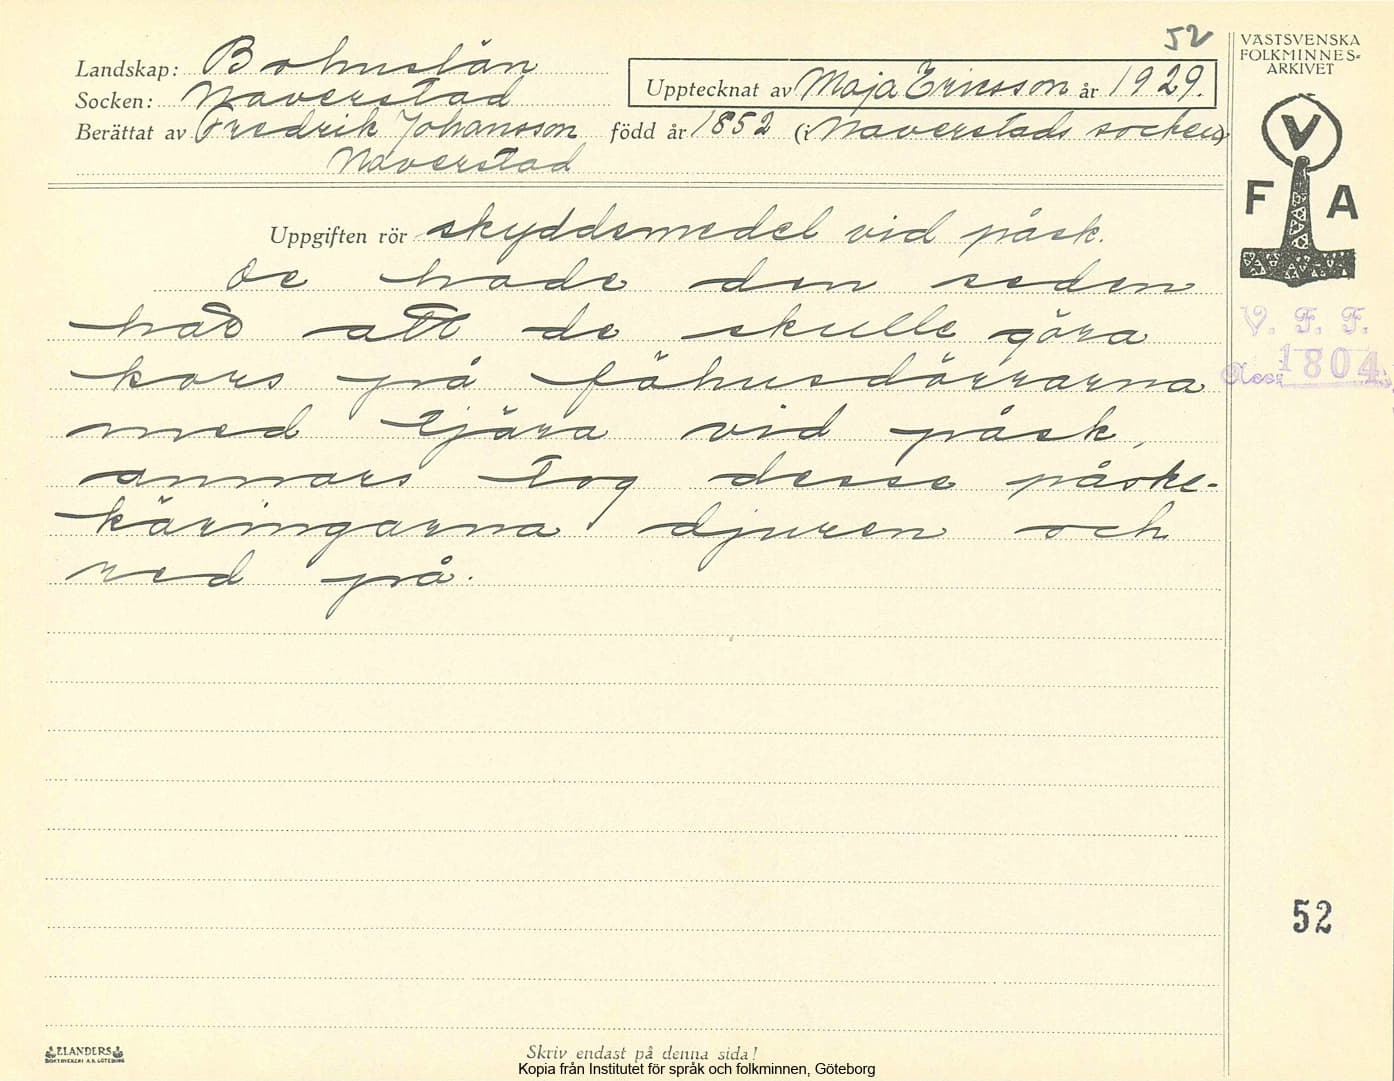 52
Landskap: Bohuslän
Socken: Naverstad
Upptecknat av Maja Ericsson år 1929.
Berättat av Fredrik Johansson född år 1852 (i Naverstads socken)
Naverstad
VÄSTSVENSKA
FOLKMINNES-
ARKIVET
V
F A
Uppgiften rör skyddsmedel vid påsk.
De hade den seden
här att de skulle göra
kors på fähusdörrarna
med tjära vid påsk,
annars tog desse påske-
käringarna djuren och
red på.
V. F. F.
Acc. 1804
52
ELANDERS
BOKTRYCKERI A.B. GÖTEBORG
Skriv endast på denna sida!
Kopia från Institutet för språk och folkminnen, Göteborg